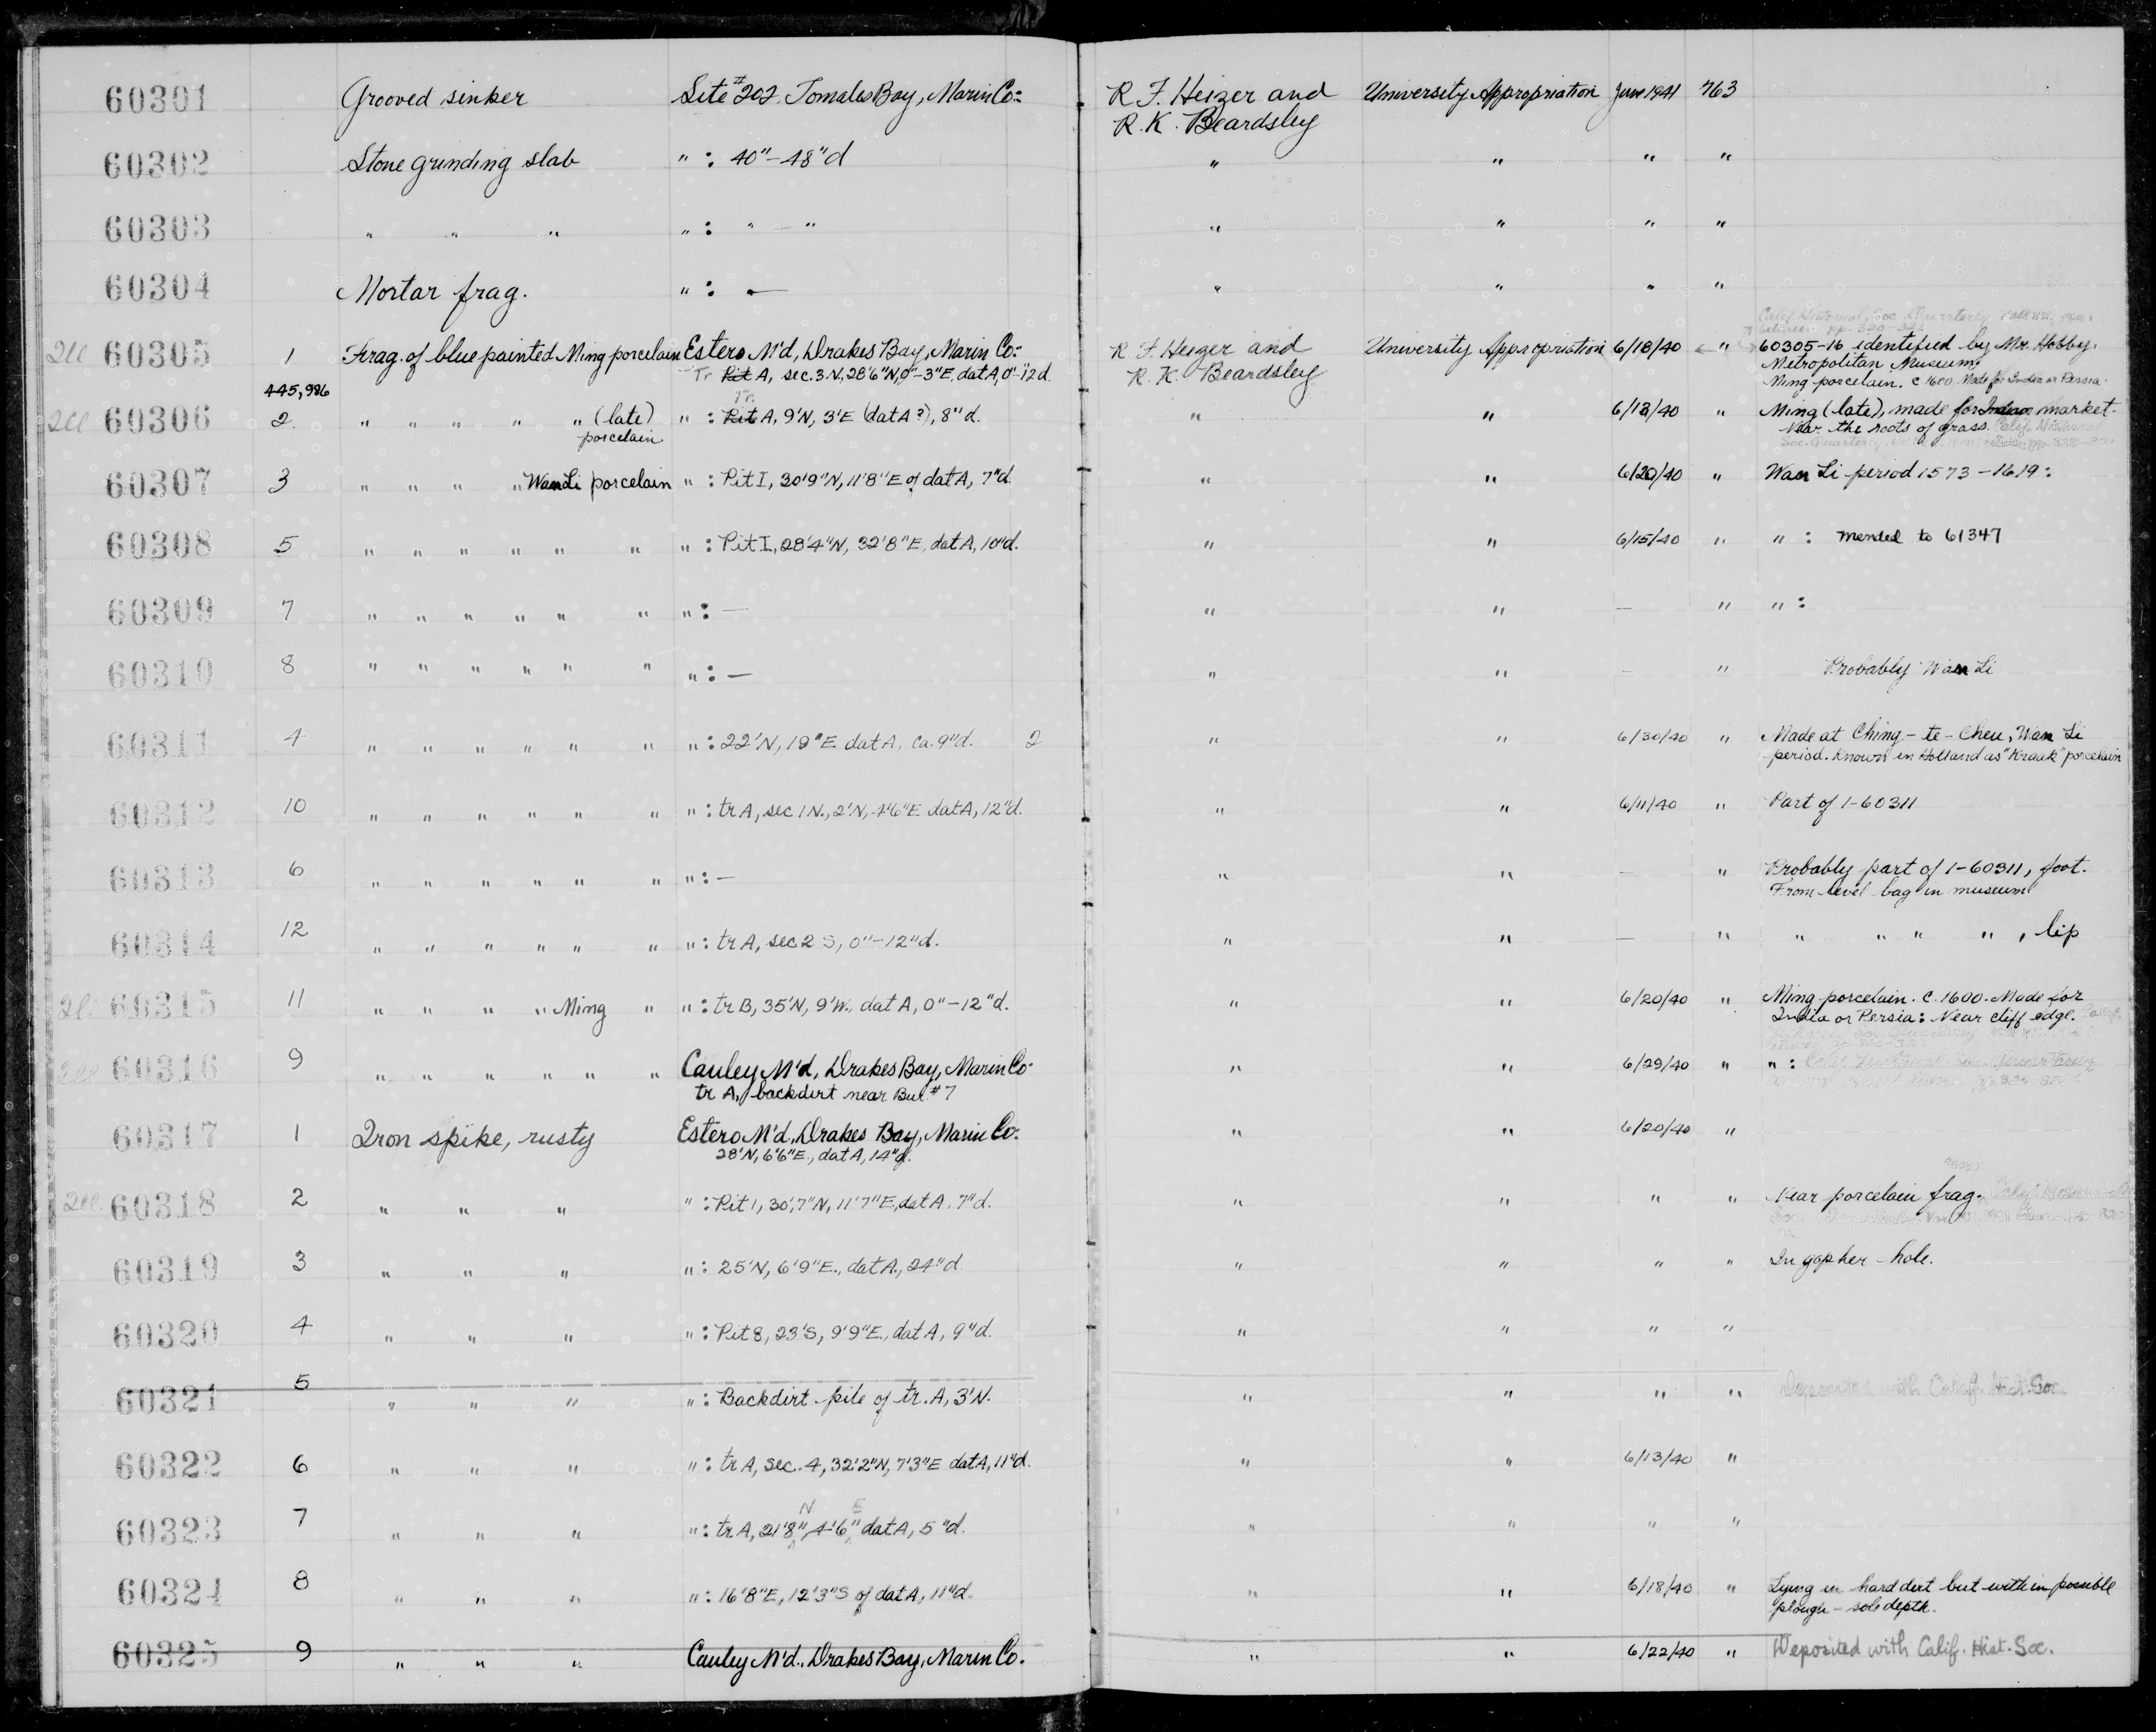 60301 Grooved sinker Site #202 Tomales Bay, Marin Co: R. F. Heizer and University Appropriation June 1941 763
R. K. Beardsley
60302 Stone grinding slab " : 40"-48"d " " " "
60303 " " " " : " - " " " " "
60304 Mortar frag. " : — " " " "
Calif. Historical Soc. Quarterly
60305 1 Frag. of blue painted Ming porcelain Estero M'd, Drakes Bay, Marin Co: R. F. Heizer and University Appropriation 6/18/40 " 60305-16 identified by Mr. Hobby,
Tr. Pit A, sec. 3 N, 28'6"N, 0"-3"E, dat A, 0"-12"d. R. K. Beardsley Metropolitan Museum,
445,986 Ming porcelain. c 1600. Made for India or Persia.
Tr.
60306 2 " " " " " (late) " : Pit A, 9'N, 3'E (dat A?), 8"d. " " 6/13/40 " Ming (late), made for Indian market.
porcelain Near the roots of grass. Calif. Historical
Soc. Quarterly
60307 3 " " " " Wan Li porcelain " : Pit I, 30'9"N, 11'8"E of dat A, 7"d. " " 6/20/40 " Wan Li period 1573-1619:
60308 5 " " " " " " " : Pit I, 28'4"N, 32'8"E, dat A, 10"d. " " 6/15/40 " " : mended to 61347
60309 7 " " " " " " " : — " " — " " :
60310 8 " " " " " " " : — " " — " Probably Wan Li
60311 4 " " " " " " " : 22'N, 19"E dat A, ca. 9"d. 2 " " 6/30/40 " Made at Ching-te-Chen, Wan Li
period. Known in Holland as "Kraak" porcelain
60312 10 " " " " " " " : tr A, sec 1 N., 2'N, 4'6"E dat A, 12"d. " " 6/11/40 " Part of 1-60311
60313 6 " " " " " " " : — " " — " Probably part of 1-60311, foot.
From level bag in museum
60314 12 " " " " " " " : tr A, sec 2 S, 0"-12"d. " " — " " " " " , lip
60315 11 " " " " Ming " " : tr B, 35'N, 9'W., dat A, 0"-12"d. " " 6/20/40 " Ming porcelain. c. 1600. Made for
India or Persia: Near cliff edge.
60316 9 " " " " " " Cauley M'd, Drakes Bay, Marin Co. " " 6/29/40 " " :
tr A, backdirt near Bur. #7
60317 1 Iron spike, rusty Estero M'd., Drakes Bay, Marin Co. " " 6/20/40 "
28'N, 6'6"E., dat A, 14"d.
60318 2 " " " " : Pit 1, 30'7"N, 11'7"E., dat A. 7"d. " " " " Near porcelain frag.
60319 3 " " " " : 25'N, 6'9"E., dat A., 24"d. " " " " In gopher-hole.
60320 4 " " " " : Pit 8, 23'S, 9'9"E., dat A, 9"d. " " " "
60321 5 " " " " : Backdirt pile of tr. A, 3'N. " " " " Deposited with Calif. Hist. Soc.
60322 6 " " " " : tr A, sec. 4, 32'2"N, 7'3"E dat A, 11"d. " " 6/13/40 "
N E
60323 7 " " " " : tr A, 21'8", 4'6", dat A, 5"d. " " " "
60324 8 " " " " : 16'8"E, 12'3"S of dat A, 11"d. " " 6/18/40 " Lying in hard dirt but within possible
plough-sole depth.
60325 9 " " " Cauley M'd., Drakes Bay, Marin Co. " " 6/22/40 " Deposited with Calif. Hist. Soc.